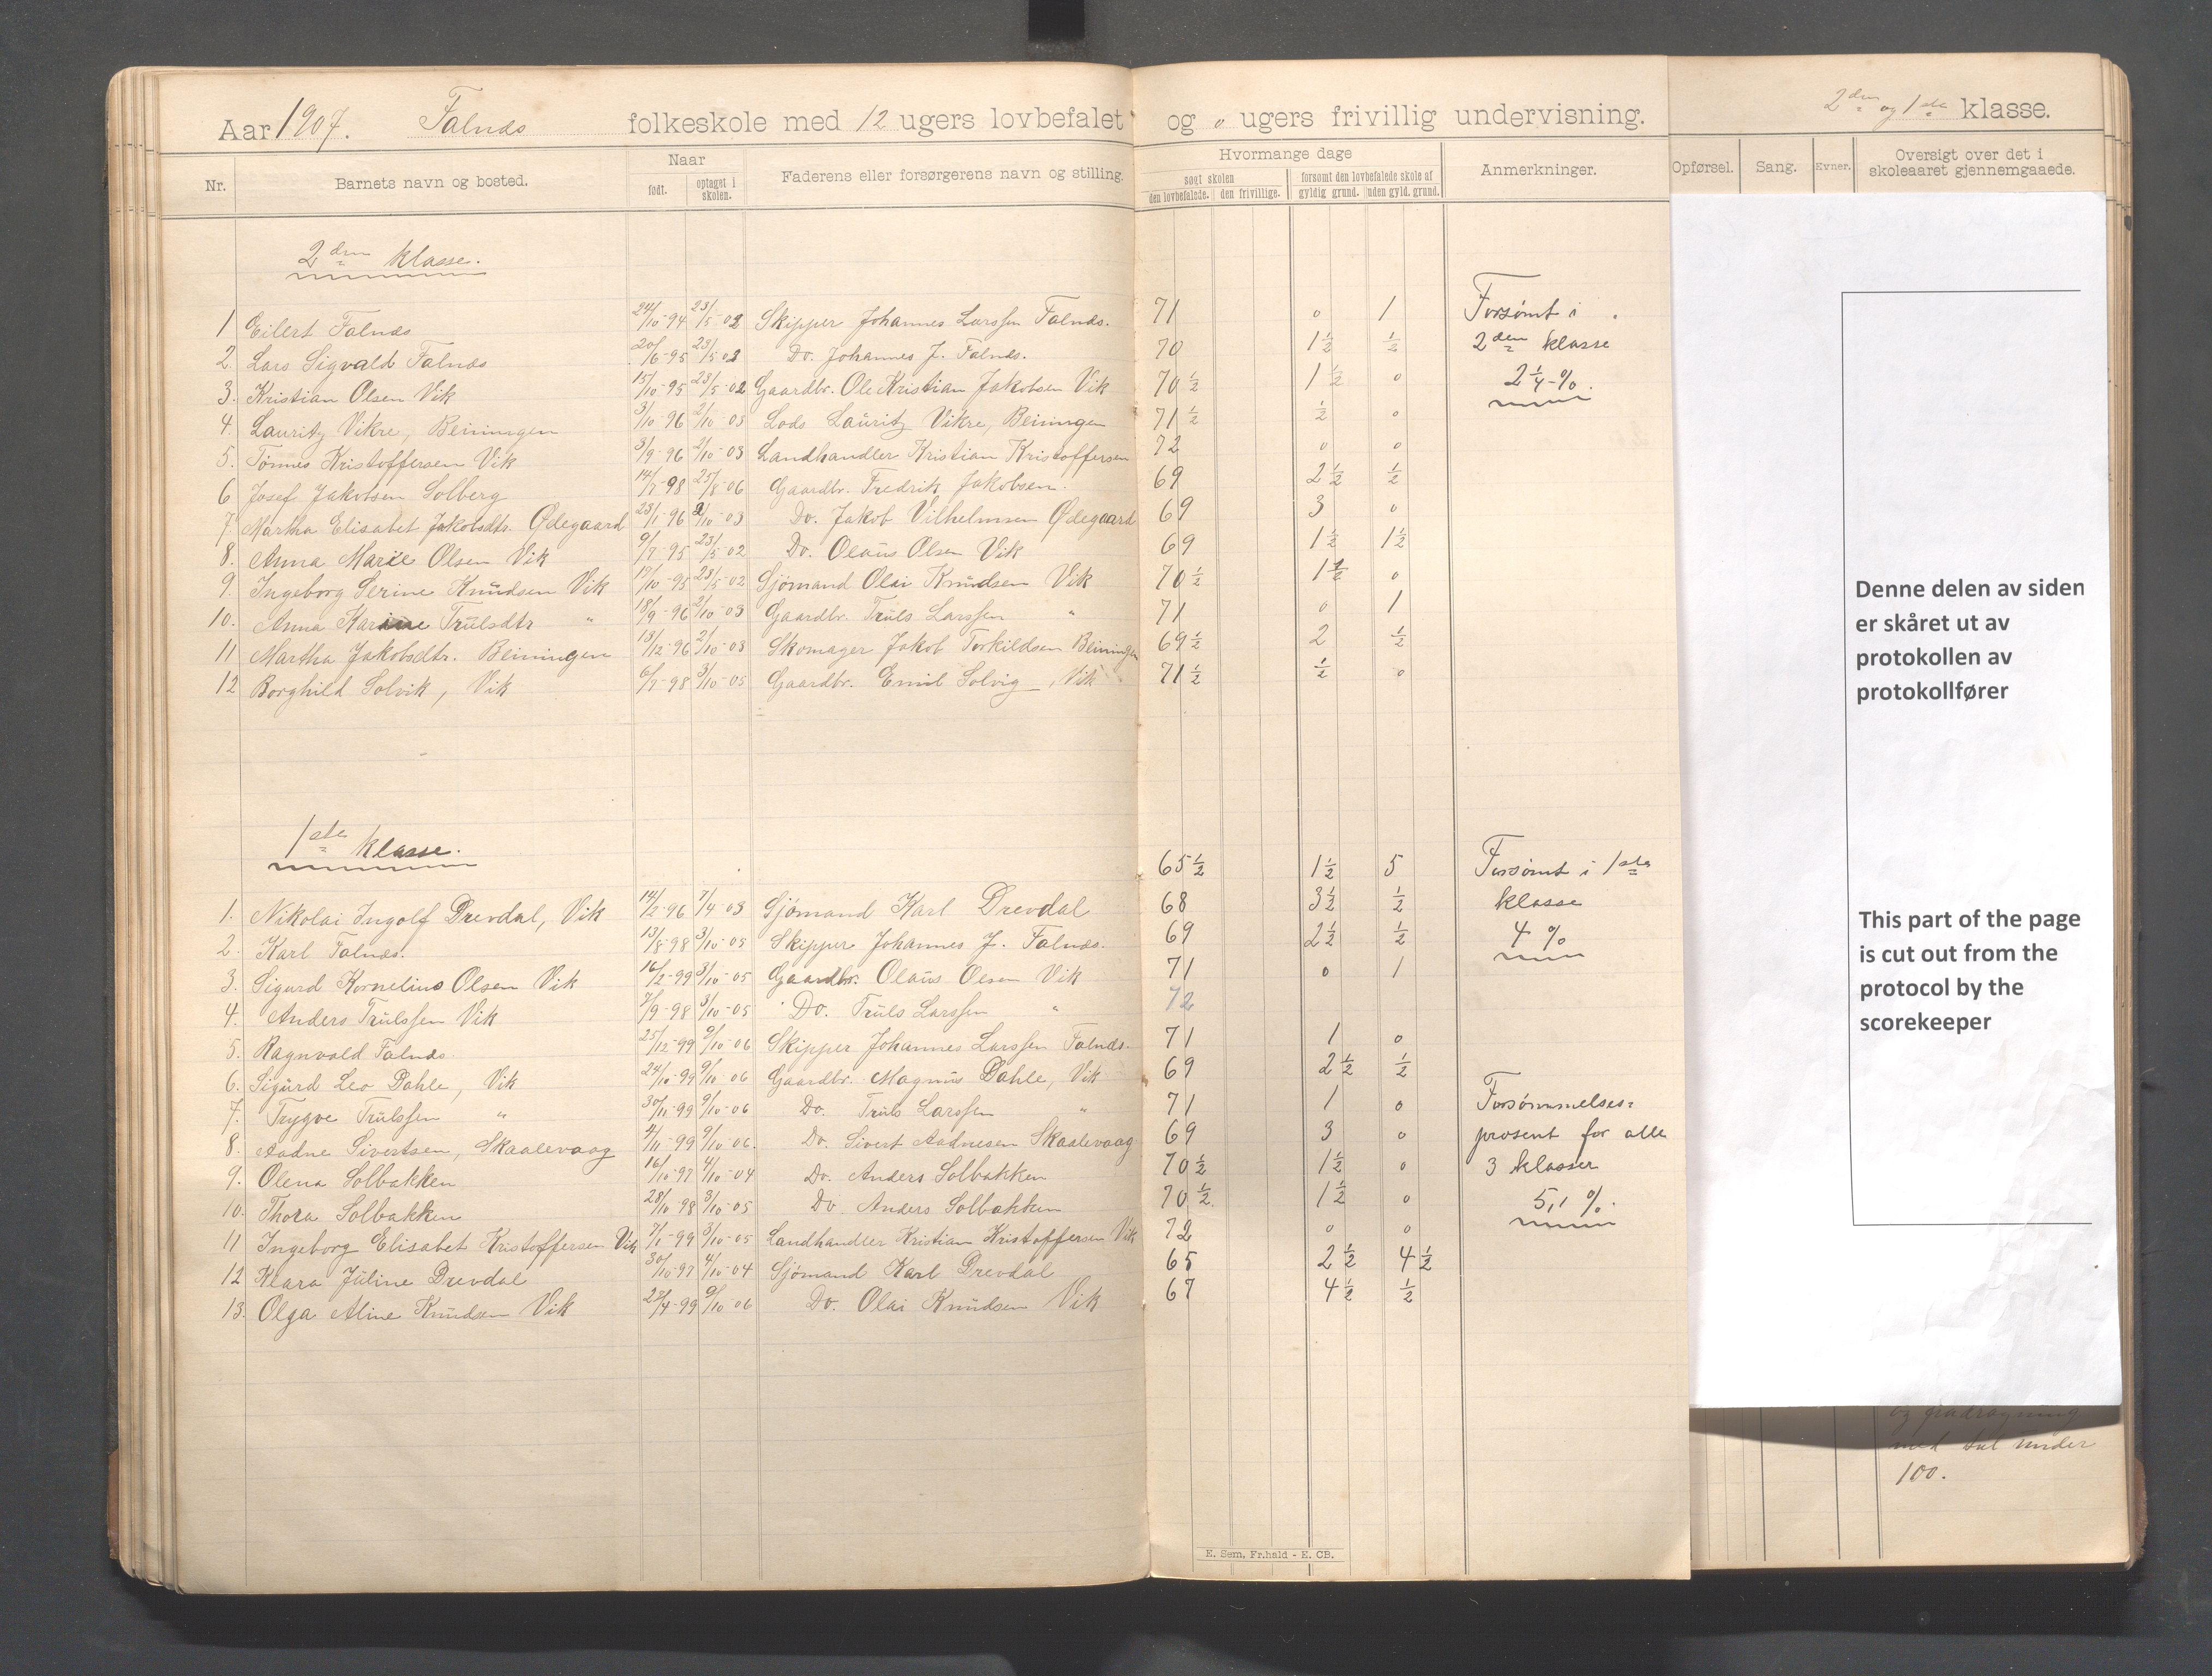 Aar 1907. Falnæs folkeskole med 12 ugers lovbefalet og 0 ugers frivillig undervisning. 2den og 1ste klasse.
Nr. Barnets navn og bosted. Naar født. optaget i skolen. Faderens eller forsørgerens navn og stilling. Hvormange dage søgt skolen den lovbefalede. den frivillige. forsømt den lovbefalede skole af gyldig grund. uden gyld. grund. Anmerkninger. Opførsel. Sang. Evner. Oversigt over det i skoleaaret gjennemgaaede.
2den klasse.
1 Eilert Falnæs 24/10-94 23/5-02 Skipper Johannes Larssen Falnæs. 71 0 1 Forsømt i
2. Lars Sigvald Falnæs 20/6-95 23/5 02 Do. Johannes J. Falnæs. 70 1 1/2 1/2 2den klasse
3. Kristian Olsen Vik 15/10-95 23/5-02 Gaardbr. Ole Kristian Jakobsen Vik 70 1/2 1 1/2 0 2 1/4 %.
4. Lauritz Vikre, Beiningen 3/10-96 2/10-03 Lods Lauritz Vikre, Beiningen 71 1/2 1/2 0
5. Tønnes Kristoffersen Vik 3/9-96 2/10-03 Landhandler Kristian Kristoffersen 72 0 0
6 Josef Jakobsen Solberg 14/7-98 25/8-06 Gaardbr. Fredrik Jakobsen. 69 2 1/2 1/2
7. Martha Elisabet Jakobsdtr. Ødegaard 23/1-96 2/10-03 Do. Jakob Vilhelmsen Ødegaard 69 3 0
8. Anna Marie Olsen Vik 9/7-95 23/5-02 Do. Olaus Olsen Vik 69 1 1/2 1 1/2
9. Ingeborg Serine Knudsen Vik 19/10-95 23/5-02 Sjømand Olai Knudsen Vik 70 1/2 1 1/2 0
10. Anna Karine Trulsdtr " 18/9-96 2/10-03 Gaardbr. Truls Larssen " 71 0 1
11 Martha Jakobsdtr. Beiningen 13/12-96 2/10-03 Skomager Jakob Torkildsen Beiningen 69 1/2 2 1/2
12 Borghild Solvik, Vik 6/7-98 3/10-05 Gaardbr. Emil Solvig, Vik 71 1/2 1/2 0
1ste klasse.
1. Nikolai Ingolf Drevdal, Vik 14/2-96 7/4-03 Sjømand Karl Drevdal 65 1/2 1 1/2 5 Forsømt i 1ste
2. Karl Falnæs. 13/8-98 3/10-05 Skipper Johannes J. Falnæs. 68 3 1/2 1/2 klasse
3. Sigurd Kornelius Olsen Vik 16/2-99 3/10-05 Gaardbr. Olaus Olsen Vik 69 2 1/2 1/2 4 %
4. Anders Trulssen Vik 7/9-98 3/10-05 Do. Truls Larssen " 71 0 1
5. Ragnvald Falnæs 25/12-99 9/10-06 Skipper Johannes Larssen Falnæs. 72
6. Sigurd Leo Dahle, Vik 24/10-99 9/10-06 Gaardbr. Magnus Dahle, Vik 71 1 0
7. Trygve Trulssen " 30/11-99 9/10-06 Do. Truls Larssen " 69 2 1/2 1/2
8. Aadne Sivertsen, Skaalevaag 4/11-99 9/10-06. Do. Sivert Aadnesen Skaalevaag 71 1 0 Forsømmelses=
9. Olena Solbakken 16/10-97 4/10-04 Do. Anders Solbakken 69 3 0 prosent for alle
10. Thora Solbakken 28/10-98 3/10-05 Do. Anders Solbakken 70 1/2 1 1/2 0 3 klasser
11 Ingeborg Elisabet Kristoffersen Vik 7/1-99 3/10-05 Landhandler Kristian Kristoffersen Vik 70 1/2 1 1/2 0 5,1 %.
12 Klara Juline Drevdal 30/10-97 4/10-04 Sjømand Karl Drevdal 72 0 0
13. Olga Aline Knudsen Vik 27/4-99 9/10-06 Do. Olai Knudsen Vik 65 2 1/2 4 1/2
67 4 1/2 1/2
E. Sem, Fr.hald - E. CB.
Denne delen av siden
er skåret ut av
protokollen av
protokollfører
This part of the page
is cut out from the
protocol by the
scorekeeper
og
med tal under
100.